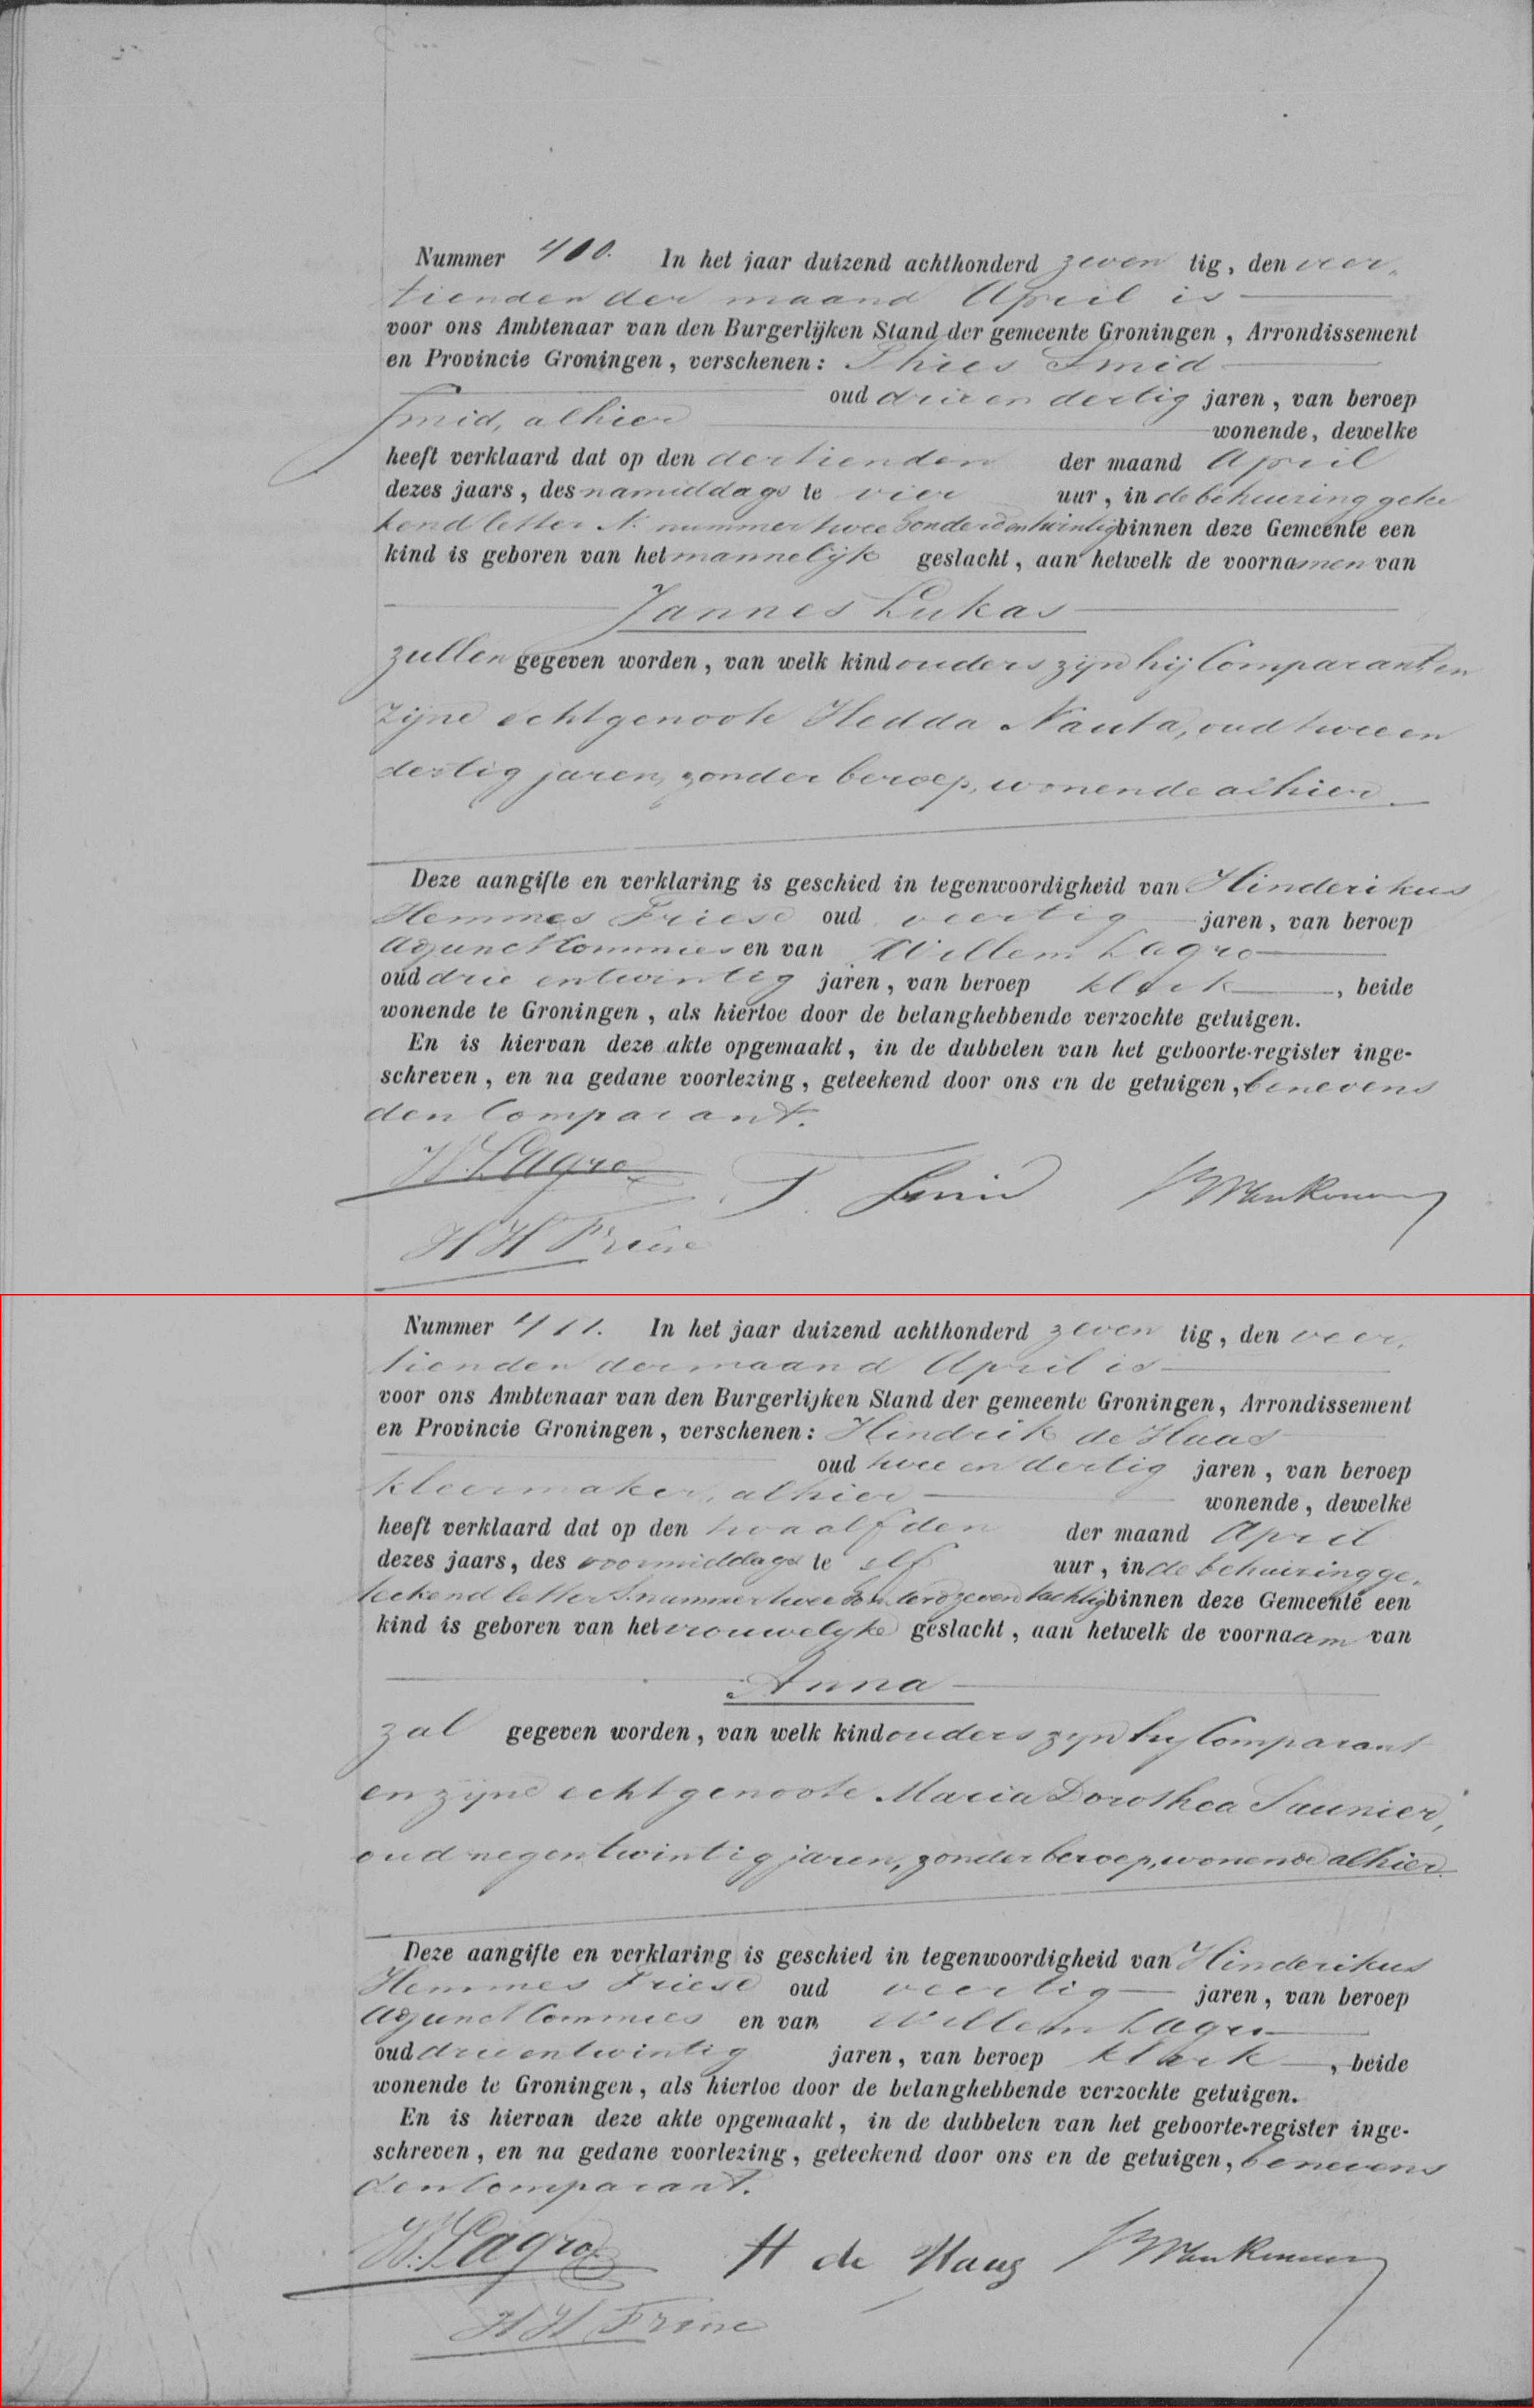 Nummer 410. In het jaar duizend achthonderd zeven tig, den veer-
tienden der maand April is
voor ons Ambtenaar van den Burgerlijken Stand der gemeente Groningen, Arrondissement
en Provincie Groningen, verschenen: Thies Smid
oud drie en dertig jaren, van beroep
smid, alhier
wonende, dewelke
heeft verklaard dat op den dertienden der maand April
dezes jaars, des namiddags te vier uur, in de behuizing gete
kend letter N. nummer twee honderd en twintig binnen deze Gemeente een
kind is geboren van het mannelijk geslacht, aan hetwelk de voornamen van
Jannes Lukas
zullen gegeven worden, van welk kind ouders zijn hij Comparant en
zijne echtgenoote Hedda Nauta, oud twee en
dertig jaren, zonder beroep, wonende alhier
Deze aangifte en verklaring is geschied in tegenwoordigheid van Hinderikus
Hemmes Friese oud veertig jaren, van beroep
Adjunct Commies en van Willem Lagro
oud drie en twintig jaren, van beroep klerk, beide
wonende te Groningen, als hiertoe door de belanghebbende verzochte getuigen.
En is hiervan deze akte opgemaakt, in de dubbelen van het geboorte-register inge-
schreven, en na gedane voorlezing, geteekend door ons en de getuigen, benevens
den Comparant.
W. Lagro T. Smid
H H Friese
Nummer 411. In het jaar duizend achthonderd zeven tig, den veer-
tienden der maand April is
voor ons Ambtenaar van den Burgerlijken Stand der gemeente Groningen, Arrondissement
en Provincie Groningen, verschenen: Hindrik de Haas
oud twee en dertig jaren, van beroep
kleermaker, alhier wonende, dewelke
heeft verklaard dat op den twaalfden der maand April
dezes jaars, des voormiddags te elf uur, in de behuizing ge-
teekend letter S. nummer twee honderd zeven tachtig binnen deze Gemeente een
kind is geboren van het vrouwelijke geslacht, aan hetwelk de voornaam van
Anna
zal gegeven worden, van welk kind ouders zijn hij Comparant
en zijne echtgenoote Maria Dorothea Saunier,
oud negentwintig jaren, zonder beroep, wonende alhier.
Deze aangifte en verklaring is geschied in tegenwoordigheid van Hinderikus
Hemmes Friese oud veertig jaren, van beroep
Adjunct Commies en van Willem Lagro
oud drie en twintig jaren, van beroep klerk, beide
wonende te Groningen, als hiertoe door de belanghebbende verzochte getuigen.
En is hiervan deze akte opgemaakt, in de dubbelen van het geboorte-register inge-
schreven, en na gedane voorlezing, geteekend door ons en de getuigen, benevens
den Comparant.
W. Lagro H de Haas
H H Friese